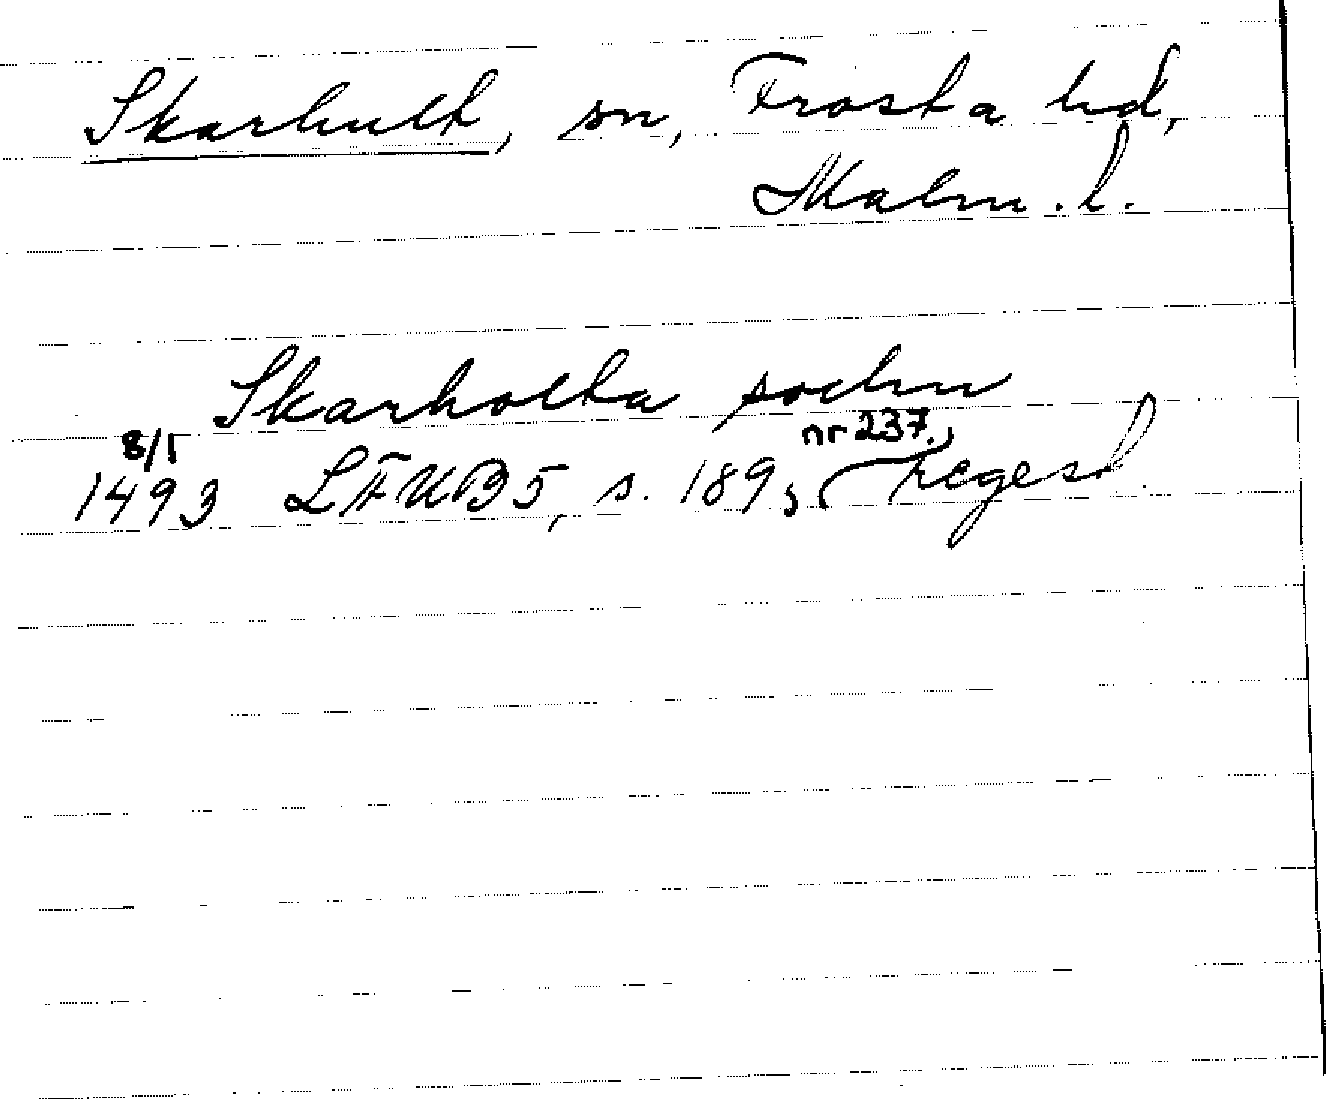 Skarhult, sn, Frosta hd,
Malm. l.
Skarholta sochn
8/1
1493 LÄUB 5, s. 189, nr 237, regest.